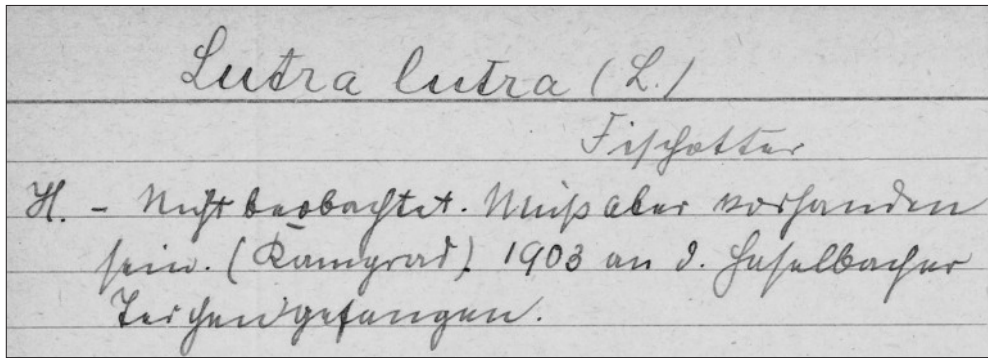 Lutra lutra (L.)
Fischotter
H. - Nicht beobachtet. Muß aber vorhanden
sein. (Kamgrad). 1903 an d. Haselbacher
Teichen gefangen.